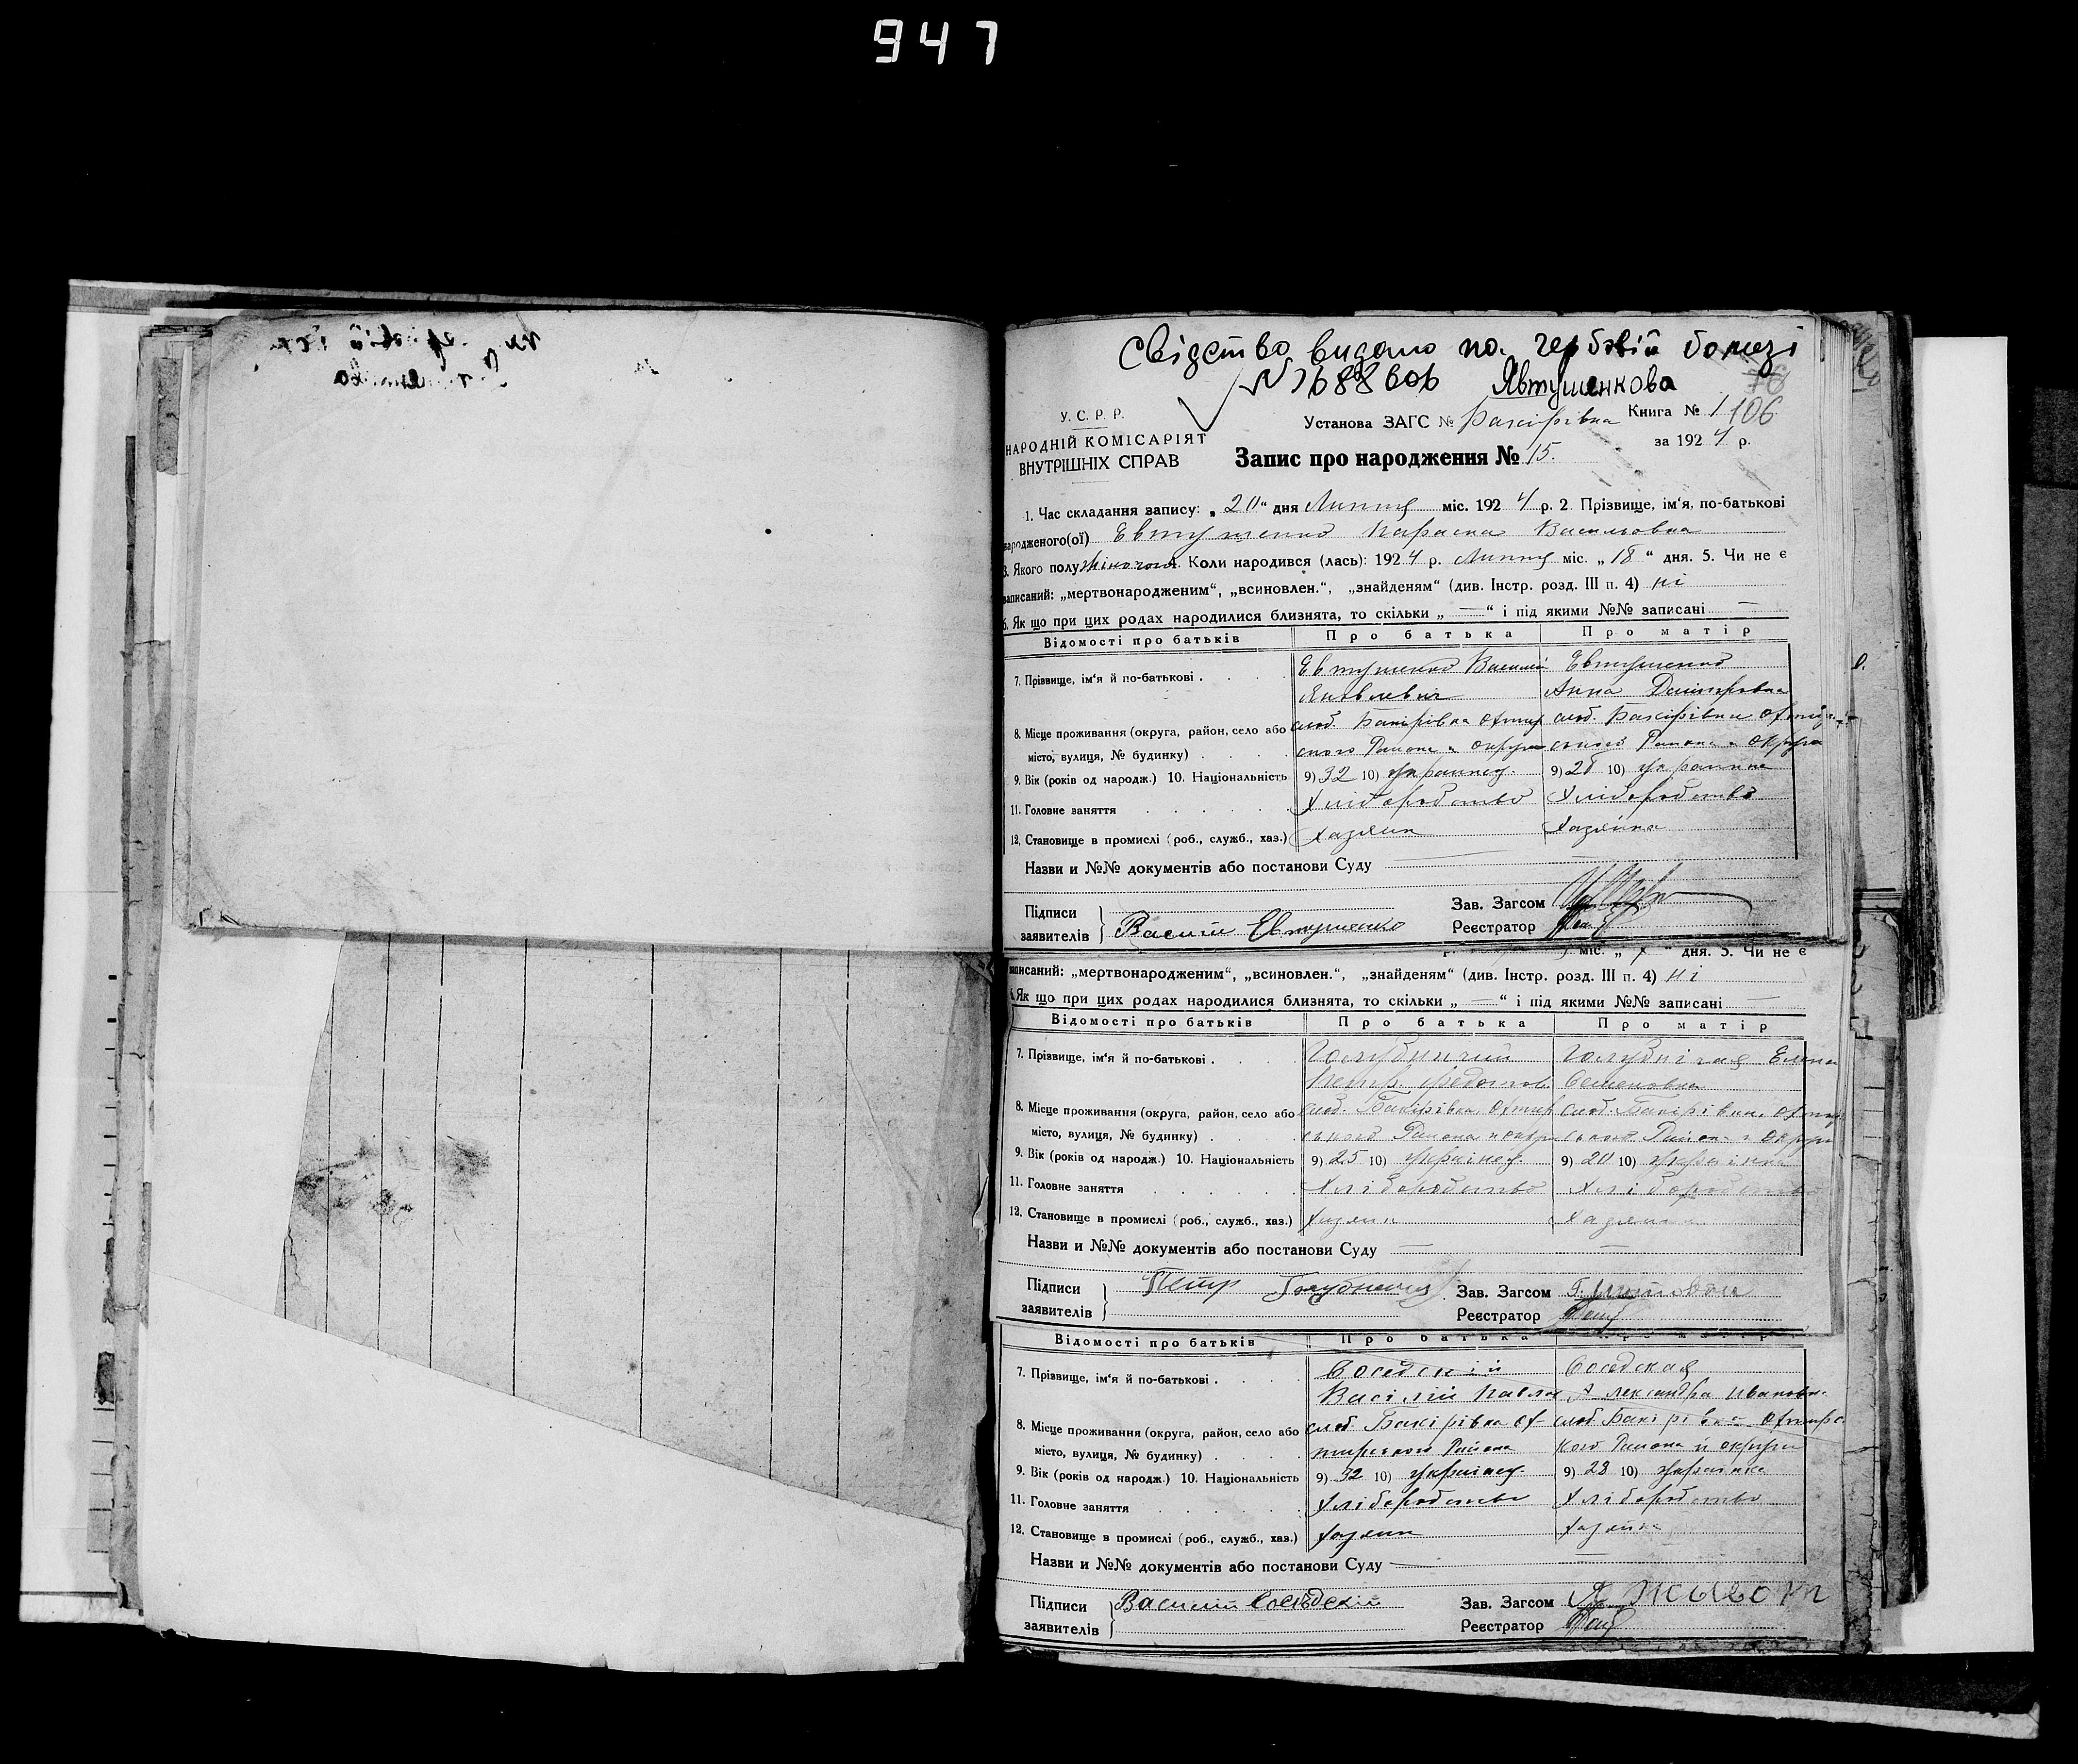 947
Свідєтво видано на гербовій бомазі
№ 1688606 Явтушенкова
76
У.С.Р.Р.
НАРОДНІЙ КОМІСАРІЯТ
ВНУТРІШНІХ СПРАВ
Установа ЗАГС № Бакірівка Книга № 1 106
за 1924 р.
Запис про народження № 15.
1. Час складання запису: „20“ дня Липня міс. 1924 р. 2. Прізвище, ім'я, по-батькові
народженого(ої) Евтушенко Параска Васильовна
3. Якого полу жіночого. Коли народився (лась): 1924 р. Липня міс. „18“ дня. 5. Чи не є
записаний: „мертвонародженим“, „всиновлен.“, „знайденям“ (див. Інстр. розд. III п. 4) ні
6. Як що при цих родах народилися близнята, то скільки „—“ і під якими №№ записані —
Відомості про батьків Про батька Про матір
7. Прізвище, ім'я й по-батькові . Евтушенко Василій Евтушенко
Яковлевич Анна
8. Місце проживання (округа, район, село або слоб. Бакірівка Охтир слоб. Бакірівка Охтир
місто, вулиця, № будинку) . ского Района и округи ского Района и округи
9. Вік (років од народж.) 10. Національність 9) 32 10) українец. 9) 28 10) українка
11. Головне заняття Хліборобство Хліборобство
12. Становище в промислі (роб., служб., хаз.) Хазяин Хазяйка
Назви и №№ документів або постанови Суду —
Підписи заявителів Василий Евтушенко
Зав. Загсом
Реєстратор
міс. „ “ дня. 5. Чи не є
записаний: „мертвонародженим“, „всиновлен.“, „знайденям“ (див. Інстр. розд. III п. 4) ні
6. Як що при цих родах народилися близнята, то скільки „—“ і під якими №№ записані —
Відомості про батьків Про батька Про матір
7. Прізвище, ім'я й по-батькові . Голубничий Голубничая Елена
Петр Федотов. Семеновна
8. Місце проживання (округа, район, село або слоб. Бакірівка Охтир слоб. Бакірівка Охтир
місто, вулиця, № будинку) . ского Района и округи ского Района и округи
9. Вік (років од народж.) 10. Національність 9) 25 10) українец. 9) 20 10) українка
11. Головне заняття Хліборобство Хліборобство
12. Становище в промислі (роб., служб., хаз.) Хазяин Хазяйка
Назви и №№ документів або постанови Суду —
Підписи заявителів Петр Голубничий
Зав. Загсом
Реєстратор
Відомості про батьків Про батька Про матір
7. Прізвище, ім'я й по-батькові . Соседский Соседская
Васілій Павлов Александра Ивановн.
8. Місце проживання (округа, район, село або слоб. Бакірівка Ох- слоб. Бакірівка Охтирс
місто, вулиця, № будинку) . тирського Района кого Района и округи
9. Вік (років од народж.) 10. Національність 9) 32 10) українец. 9) 28 10) українка
11. Головне заняття Хліборобство Хліборобство
12. Становище в промислі (роб., служб., хаз.) Хазяин Хазяйка
Назви и №№ документів або постанови Суду —
Підписи заявителів Василий Сосѣдский
Зав. Загсом
Реєстратор